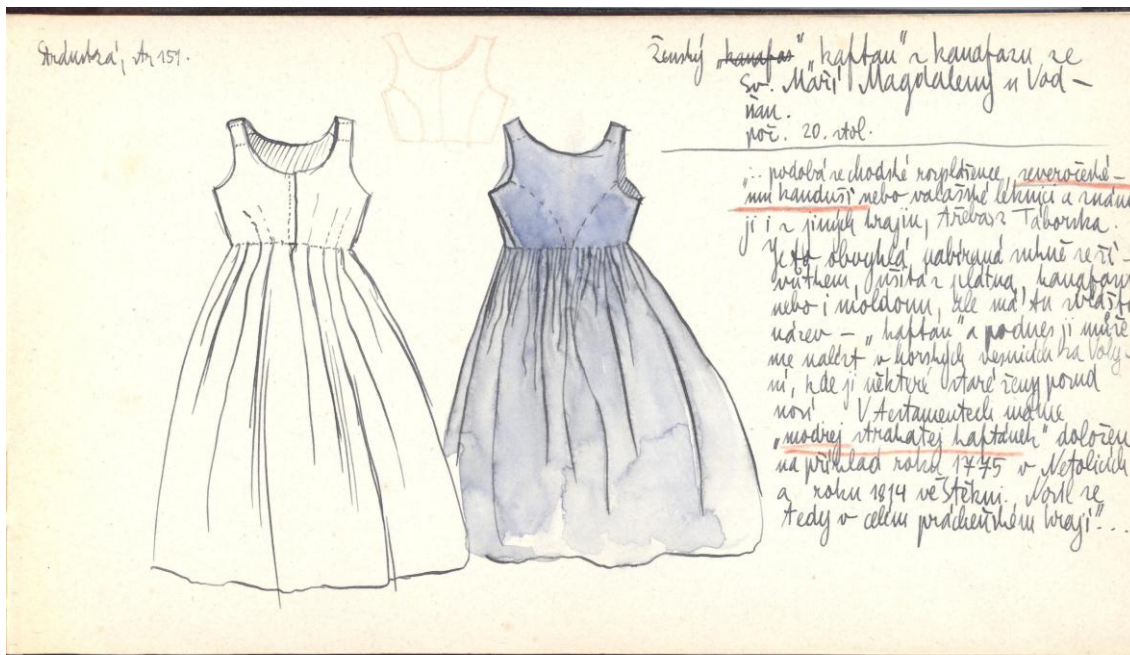 str 151.
Ženský „kanafas" „kaftan" z kanafazu ze
Sv. Máří Magdaleny u Vod–
ňan.
poč. 20. stol.
„.. podobá se chodské rozpláence, severočeské–
mu kanduši nebo valašské leknici a známe
ji i z jiných krajin, třebas z Táborska.
Je to obvyklá, nabíraná sukně se ži–
vůtkem, ušitá z plátna, kanafazu
nebo i moldonu, ale má tu zvláštní
název – „kaftan" a podnes ji může–
me nalézt v horských vesnicích za Voly–
ní, kde ji některé staré ženy porud
nosí. V testamentech máme
„modrej strakatej kaftánek" doložen
na příklad roku 1775 v Netolicích
a roku 1814 ve Štěkni. Nosil se
tedy v celém prácheňském kraji"...